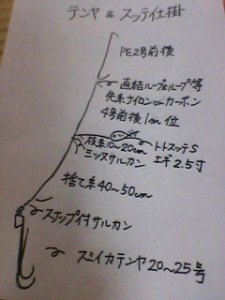 テンヤ & スッテ仕掛
PE2号前後
直結ループ&ループ等
先糸ナイロンorカーボン
4号前後1m位
枝糸10~20cm
ミツマタサルカン
トトスッテS
エギ2.5寸
捨て糸40~50cm
スナップ付サルカン
スミイカテンヤ20~25号